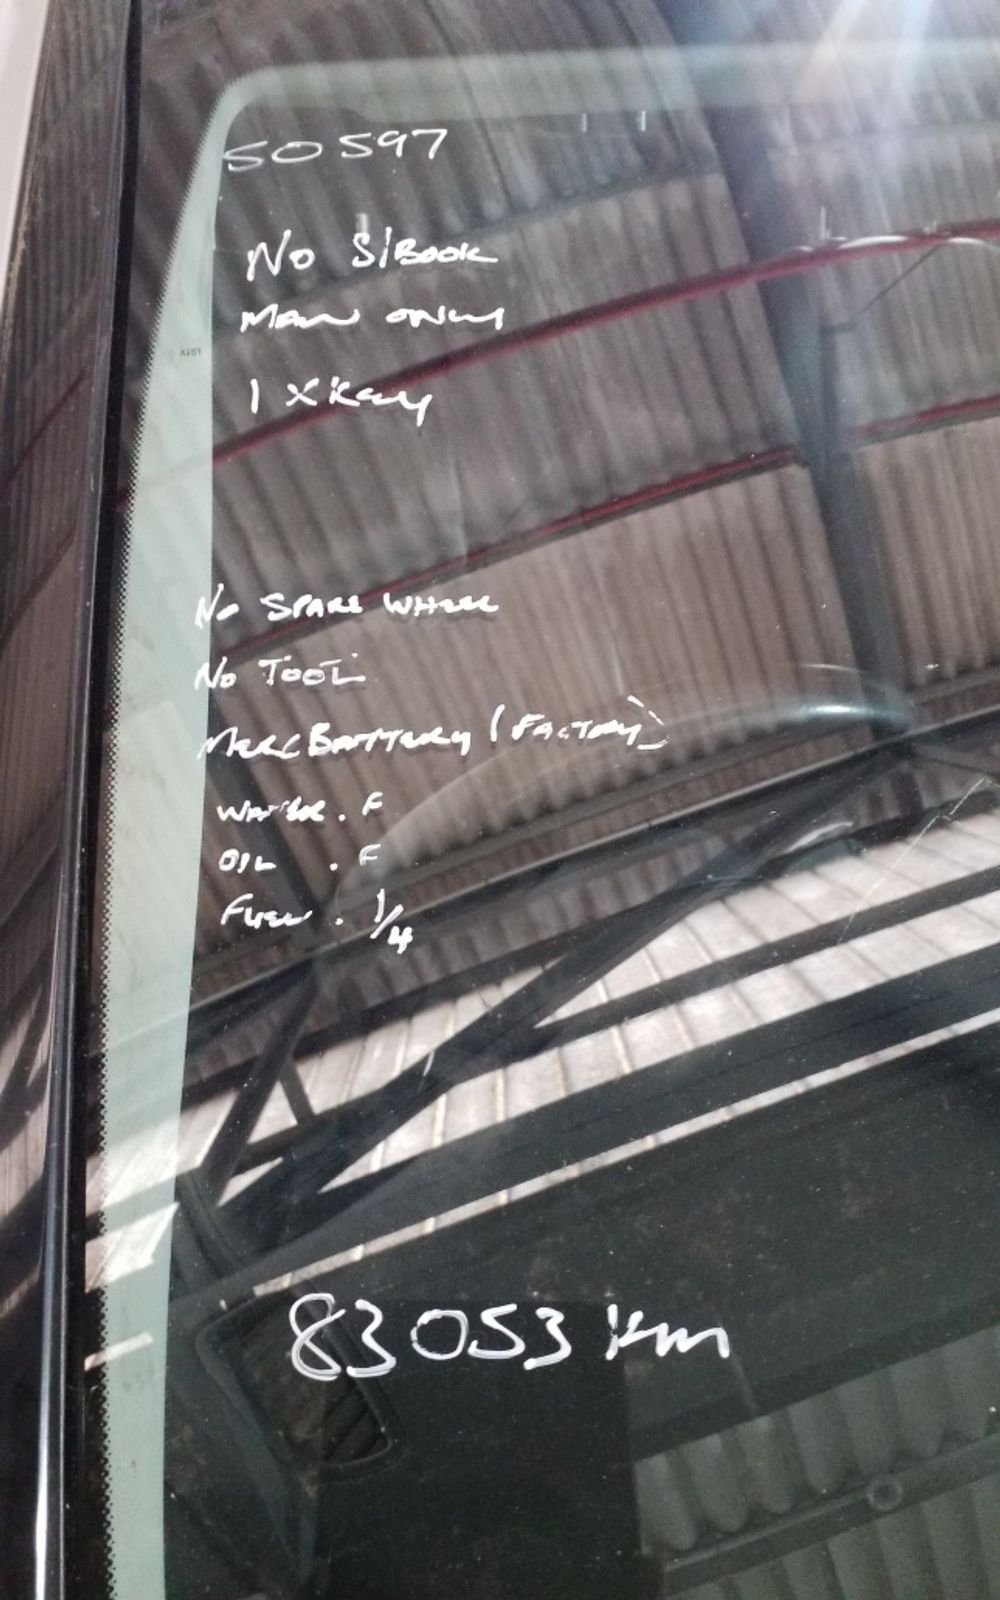 50597
No S/Book
Man only
1 x Key
No SPARE WHEEL
No TOOL
MERC BATTERY (FACTORY)
WATER . F
OIL . F
Fuel . 1/4
83053 km